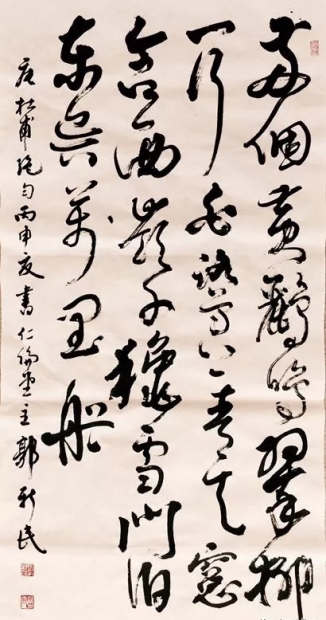 兩個黃鸝鳴翠柳
一行白鷺上青天窓
含西嶺千龝雪門泊
東吳萬里船
唐杜甫絕句丙申夏書仁倫堂主郭新民